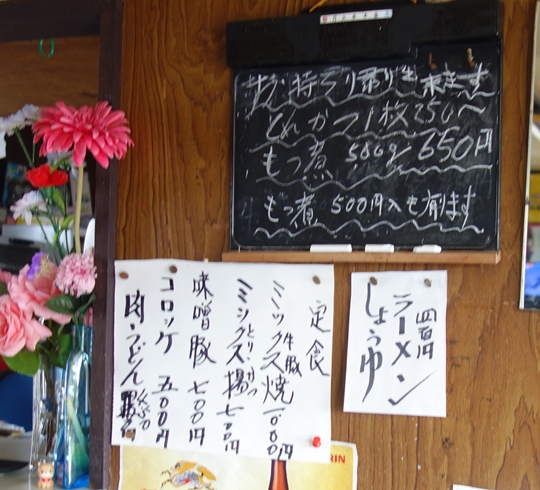 お持ち帰り出来ます
とんかつ1枚250〜
もつ煮 500g 650円
もつ煮 500円入も有ります
定食
ミックス焼 牛豚 1000円
ミックス揚 とり 700円
味噌豚 七〇〇円
コロッケ 五〇〇円
肉うどん
しょうゆ
ラーメン
四百円
KIRIN